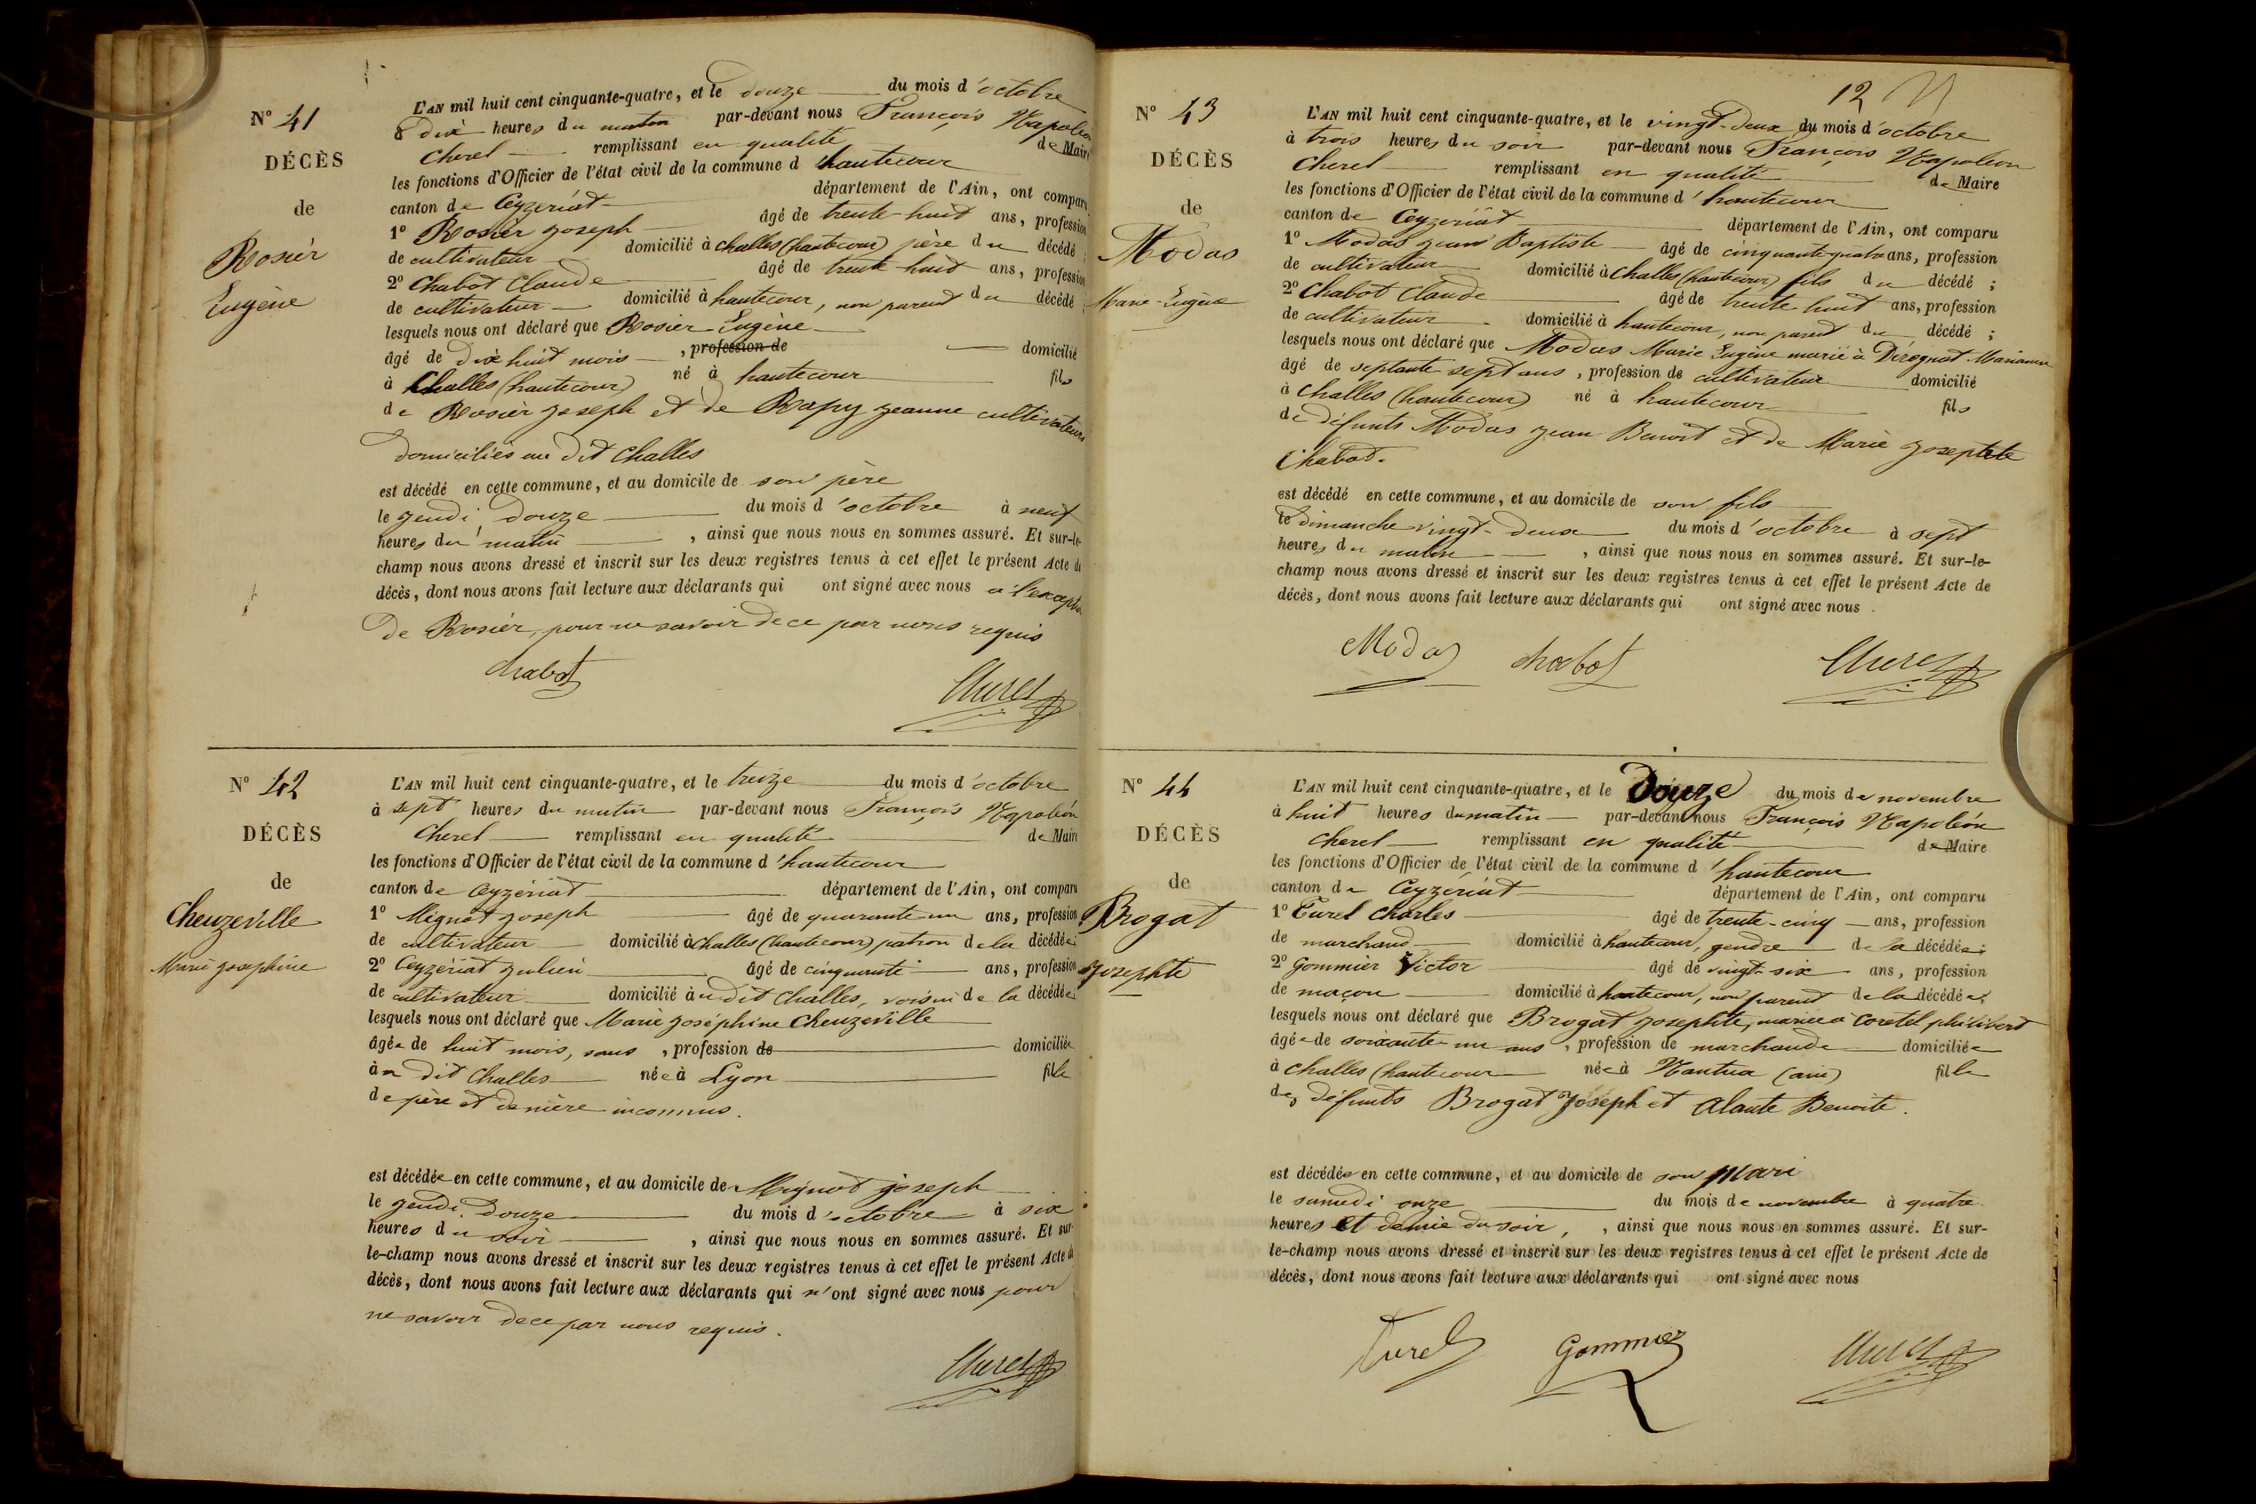 N° 41
DÉCÈS
de
Rosier
Eugène
L'AN mil huit cent cinquante-quatre, et le douze du mois d'octobre
à dix heures du matin par-devant nous François Napoléon
Cherel remplissant en qualité de Maire
les fonctions d'Officier de l'état civil de la commune d'hautecour
canton de Ceyzériat département de l'Ain, ont comparu
1° Rosier joseph âgé de trente-huit ans, profession
de cultivateur domicilié à Challes (hautecour) père du décédé ;
2° Chabot Claude âgé de trente huit ans, profession
de cultivateur domicilié à hautecour, non parent du décédé ;
lesquels nous ont déclaré que Rosier Eugène
âgé de dix huit mois, profession de domicilié
à Challes (hautecour) né à hautecour fils
de Rosier joseph et de Rapy jeanne cultivateurs
domiciliés au dit Challes
est décédé en cette commune, et au domicile de son père
le jeudi douze du mois d'octobre à neuf
heures du matin, ainsi que nous nous en sommes assuré. Et sur-le-
champ nous avons dressé et inscrit sur les deux registres tenus à cet effet le présent Acte de
décès, dont nous avons fait lecture aux déclarants qui ont signé avec nous à l'exception
de Rosier, pour ne savoir de ce par nous requis
Chabot
Cherel
N° 42
DÉCÈS
de
Cheuzeville
Marie josephine
L'AN mil huit cent cinquante-quatre, et le treize du mois d'octobre
à sept heures du matin par-devant nous François Napoléon
Cherel remplissant en qualité de Maire
les fonctions d'Officier de l'état civil de la commune d'hautecour
canton de Ceyzériat département de l'Ain, ont comparu
1° Mignot joseph âgé de quarante un ans, profession
de cultivateur domicilié à Challes (hautecour) patron de la décédée ;
2° Ceyzériat julien âgé de cinquante ans, profession
de cultivateur domicilié au dit Challes, voisin de la décédée ;
lesquels nous ont déclaré que Marie joséphine Cheuzeville
âgée de huit mois, sans, profession de domiciliée
au dit Challes née à Lyon fille
de père et de mère inconnus.
est décédée en cette commune, et au domicile de Mignot joseph
le jeudi douze du mois d'octobre à six
heures du soir, ainsi que nous nous en sommes assuré. Et sur-
le-champ nous avons dressé et inscrit sur les deux registres tenus à cet effet le présent Acte de
décès, dont nous avons fait lecture aux déclarants qui n'ont signé avec nous pour
ne savoir de ce par nous requis.
Cherel
12
N° 43
DÉCÈS
de
Modas
Marie-Eugène
L'AN mil huit cent cinquante-quatre, et le vingt-deux du mois d'octobre
à trois heures du soir par-devant nous François Napoléon
Cherel remplissant en qualité de Maire
les fonctions d'Officier de l'état civil de la commune d'hautecour
canton de Ceyzériat département de l'Ain, ont comparu
1° Modas jean Baptiste âgé de cinquante-quatre ans, profession
de cultivateur domicilié à Challes (hautecour) fils du décédé ;
2° Chabot Claude âgé de trente huit ans, profession
de cultivateur domicilié à hautecour, non parent du décédé ;
lesquels nous ont déclaré que Modas Marie Eugène marié à Dérognat Marianne
âgé de septante sept ans, profession de cultivateur domicilié
à Challes (hautecour) né à hautecour fils
de défunts Modas jean Benoit et de Marie josephte
Chabot.
est décédé en cette commune, et au domicile de son fils
le dimanche vingt-deux du mois d'octobre à sept
heures du matin, ainsi que nous nous en sommes assuré. Et sur-le-
champ nous avons dressé et inscrit sur les deux registres tenus à cet effet le présent Acte de
décès, dont nous avons fait lecture aux déclarants qui ont signé avec nous.
Modas Chabot Cherel
N° 44
DÉCÈS
de
Brogat
Josephte
L'AN mil huit cent cinquante-quatre, et le Douze du mois de novembre
à huit heures du matin par-devant nous François Napoléon
Cherel remplissant en qualité de Maire
les fonctions d'Officier de l'état civil de la commune d'hautecour
canton de Ceyzériat département de l'Ain, ont comparu
1° Turel Charles âgé de trente-cinq ans, profession
de marchand domicilié à hautecour, gendre de la décédée ;
2° Gommier Victor âgé de vingt-six ans, profession
de maçon domicilié à hautecour, non parent de la décédée ;
lesquels nous ont déclaré que Brogat josephte, mariée à Coretel philibert
âgée de soixante-un ans, profession de marchande domiciliée
à Challes (hautecour née à Nantua (ain) fille
des défunts Brogat Joseph et Alante Benoite.
est décédée en cette commune, et au domicile de son mari
le samedi onze du mois de novembre à quatre
heures et demie du soir, , ainsi que nous nous en sommes assuré. Et sur-
le-champ nous avons dressé et inscrit sur les deux registres tenus à cet effet le présent Acte de
décès, dont nous avons fait lecture aux déclarants qui ont signé avec nous
Turel Gommier Cherel